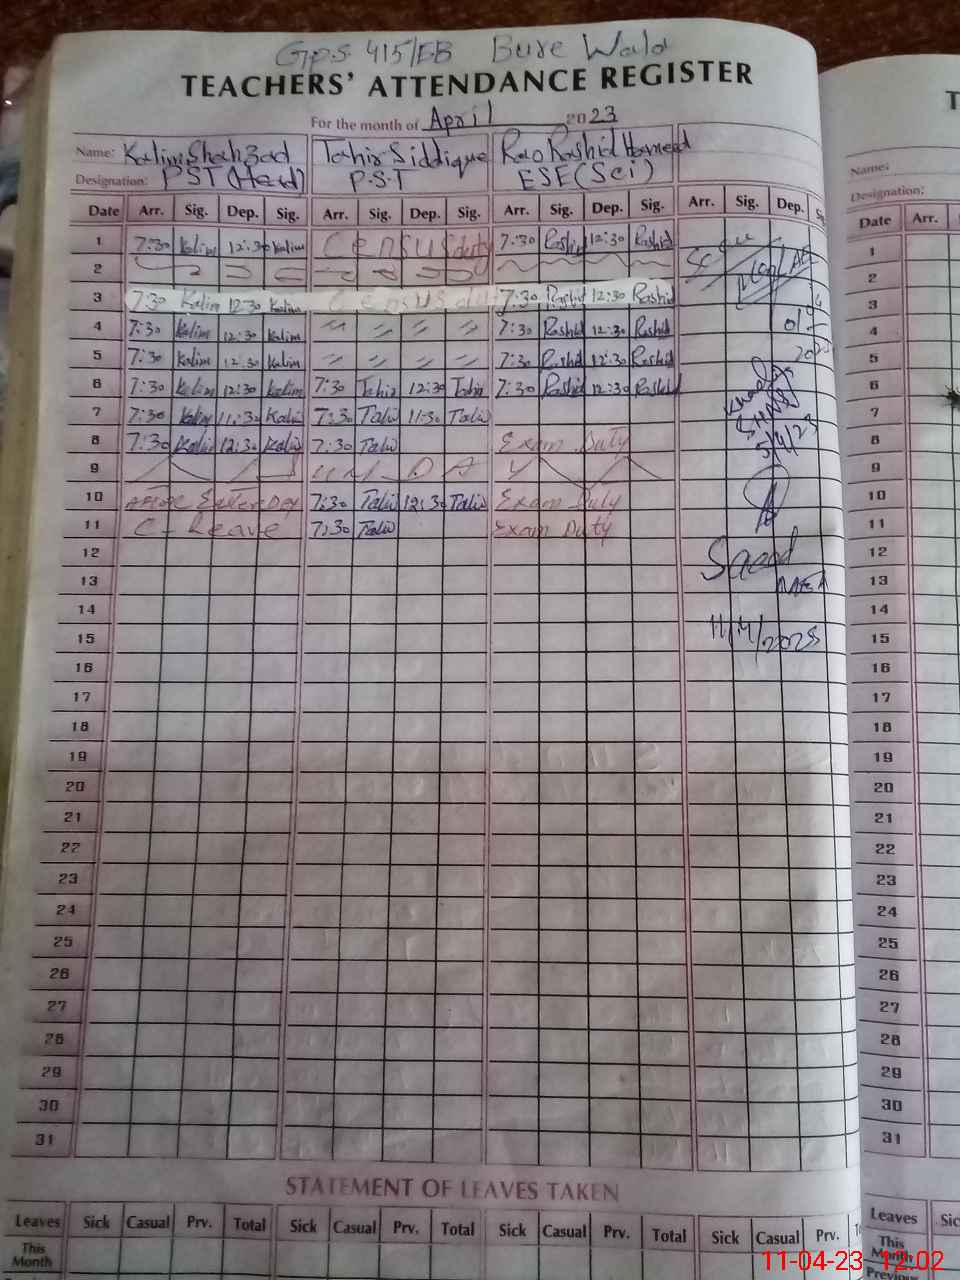 G.P.S 415/EB Bure Wala
TEACHERS' ATTENDANCE REGISTER
For the month of April 2023
Name: Kalim Shahzad Tahir Siddique Rao Rashid Hameed
Designation: PST (Head) P.S.T ESE (Sci)
Date Arr. Sig. Dep. Sig. Arr. Sig. Dep. Sig. Arr. Sig. Dep. Sig. Arr. Sig. Dep.
1 7:30 Kalim 12:30 Kalim Census duty 7:30 Rashid 12:30 Rashid
2
3 7:30 Kalim 12:30 Kalim Census duty 7:30 Rashid 12:30 Rashid
4 7:30 Kalim 12:30 Kalim 〃 〃 〃 〃 7:30 Rashid 12:30 Rashid
5 7:30 Kalim 12:30 Kalim 〃 〃 〃 〃 7:30 Rashid 12:30 Rashid
6 7:30 Kalim 12:30 Kalim 7:30 Tahir 12:30 Tahir 7:30 Rashid 12:30 Rashid
7 7:30 Kalim 11:30 Kalim 7:30 Tahir 11:30 Tahir
8 7:30 Kalim 12:30 Kalim 7:30 Tahir Exam Duty 5/4/23
9 S U N D A Y
10 Easter Day 7:30 Tahir 12:30 Tahir Exam Duty
11 C-Leave 7:30 Tahir Exam Duty
12 Saeed
13
14
15 11/4/2023
16
17
18
19
20
21
22
23
24
25
26
27
28
29
30
31
STATEMENT OF LEAVES TAKEN
Leaves Sick Casual Prv. Total Sick Casual Prv. Total Sick Casual Prv. Total Sick Casual Prv.
This Month
Name:
Designation:
Date Arr.
1
2
3
4
5
6
7
8
9
10
11
12
13
14
15
16
17
18
19
20
21
22
23
24
25
26
27
28
29
30
31
Leaves
This Month
11-04-23 12:02